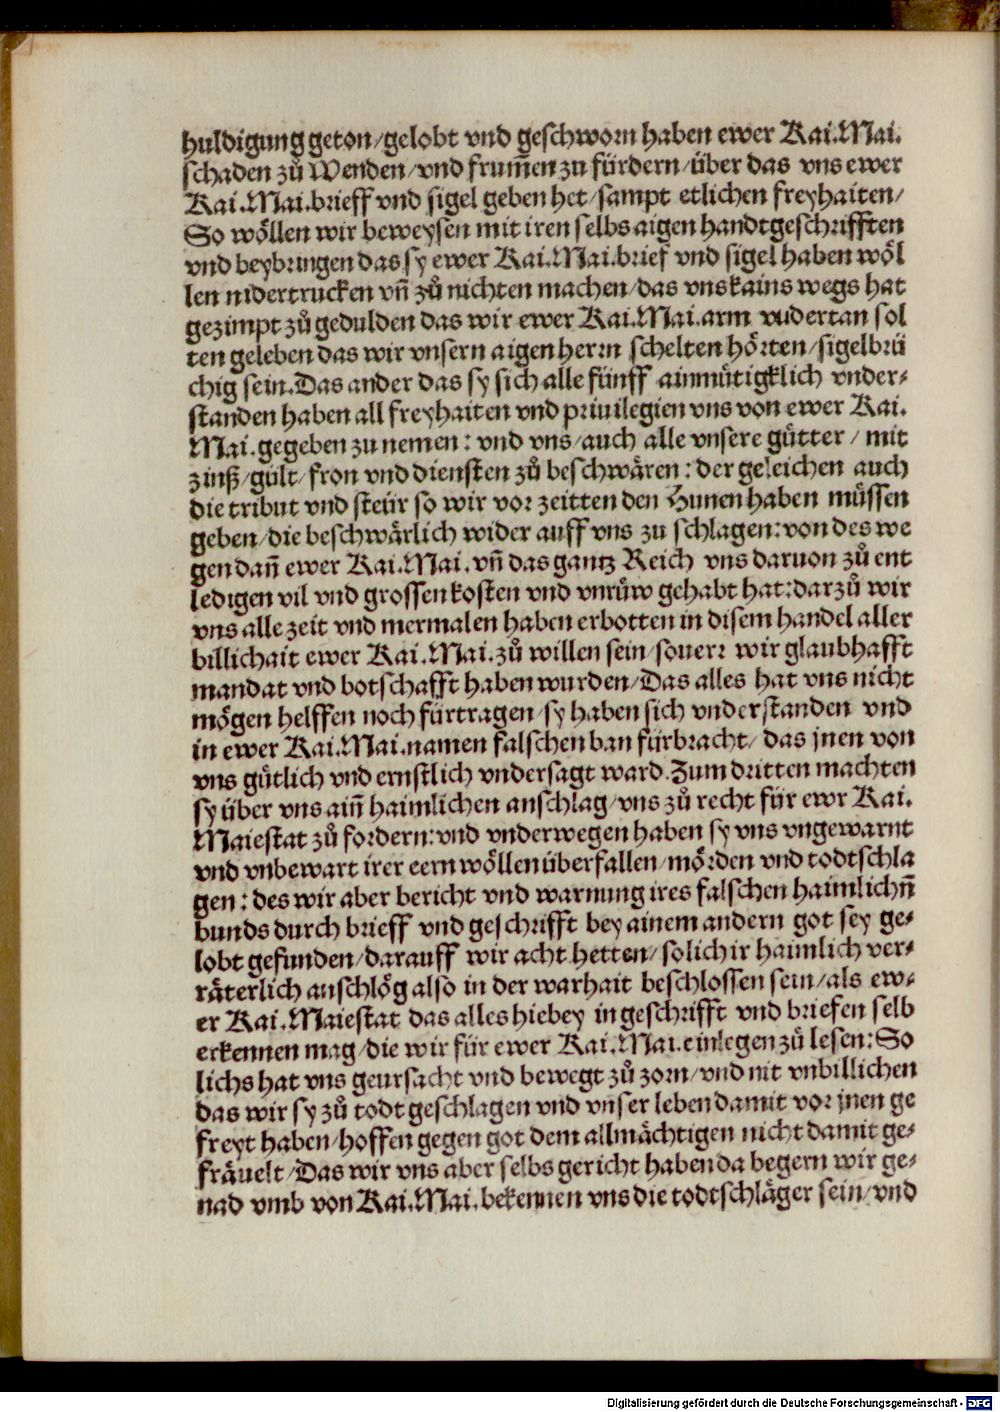 huldigung geton/gelobt vnd geschworn haben ewer Kai.Mai.
schaden zů Wenden/vnd frum̃en zu fürdern/über das vns ewer
Kai.Mai.brieff vnd sigel geben het/sampt etlichen freyhaiten/
So wöllen wir beweysen mit iren selbs aigen handtgeschrifften
vnd beybringen das sy ewer Kai.Mai.brief vnd sigel haben wöl
len nidertrucken vñ zů nichten machen/das vns kains wegs hat
gezimpt zů gedulden das wir ewer Kai.Mai.arm vudertan sol
ten geleben das wir vnsern aigen herrn schelten hörten/sigelbrü
chig sein.Das ander das sy sich alle fünff ainmütigklich vnder-
standen haben all freyhaiten vnd priuilegien vns von ewer Kai.
Mai.gegeben zu nemen: vnd vns/auch alle vnsere gütter/ mit
zinß/gült/fron vnd diensten zů beschwären: der geleichen auch
die tribut vnd steür so wir vor zeitten den Hunen haben müssen
geben/die beschwärlich wider auff vns zu schlagen: von des we
gen dañ ewer Kai.Mai.vñ das gantz Reich vns daruon zů ent
ledigen vil vnd grossen kosten vnd vnrüw gehabt hat: darzů wir
vns alle zeit vnd mermalen haben erbotten in disem handel aller
billichait ewer Kai.Mai.zů willen sein/souerr wir glaubhafft
mandat vnd botschafft haben wurden/Das alles hat vns nicht
mögen helffen noch fürtragen/sy haben sich vnderstanden vnd
in ewer Kai.Mai.namen falschen ban fürbracht/ das jnen von
vns gütlich vnd ernstlich vndersagt ward.Zum dritten machten
sy über vns aiñ haimlichen anschlag/vns zů recht für ewr Kai.
Maiestat zů fordern: vnd vnderwegen haben sy vns vngewarnt
vnd vnbewart irer eern wöllen überfallen/mörden vnd todtschla
gen: des wir aber bericht vnd warnung ires falschen haimlichñ
bunds durch brieff vnd geschrifft bey ainem andern got sey ge-
lobt gefunden/darauff wir acht hetten/solich ir haimlich ver-
räterlich anschlög also in der warhait beschlossen sein/als ew-
er Kai.Maiestat das alles hiebey in geschrifft vnd briefen selb
erkennen mag/die wir für ewer Kai.Mai.einlegen zů lesen: So
lichs hat vns geursacht vnd bewegt zů zorn/vnd nit vnbillichen
das wir sy zů todt geschlagen vnd vnser leben damit vor jnen ge
freyt haben/hoffen gegen got dem allmächtigen nicht damit ge-
fräuelt/Das wir vns aber selbs gericht haben da begern wir ge-
nad vmb von Kai.Mai.bekennen vns die todtschläger sein/vnd
Digitalisierung gefördert durch die Deutsche Forschungsgemeinschaft - DFG